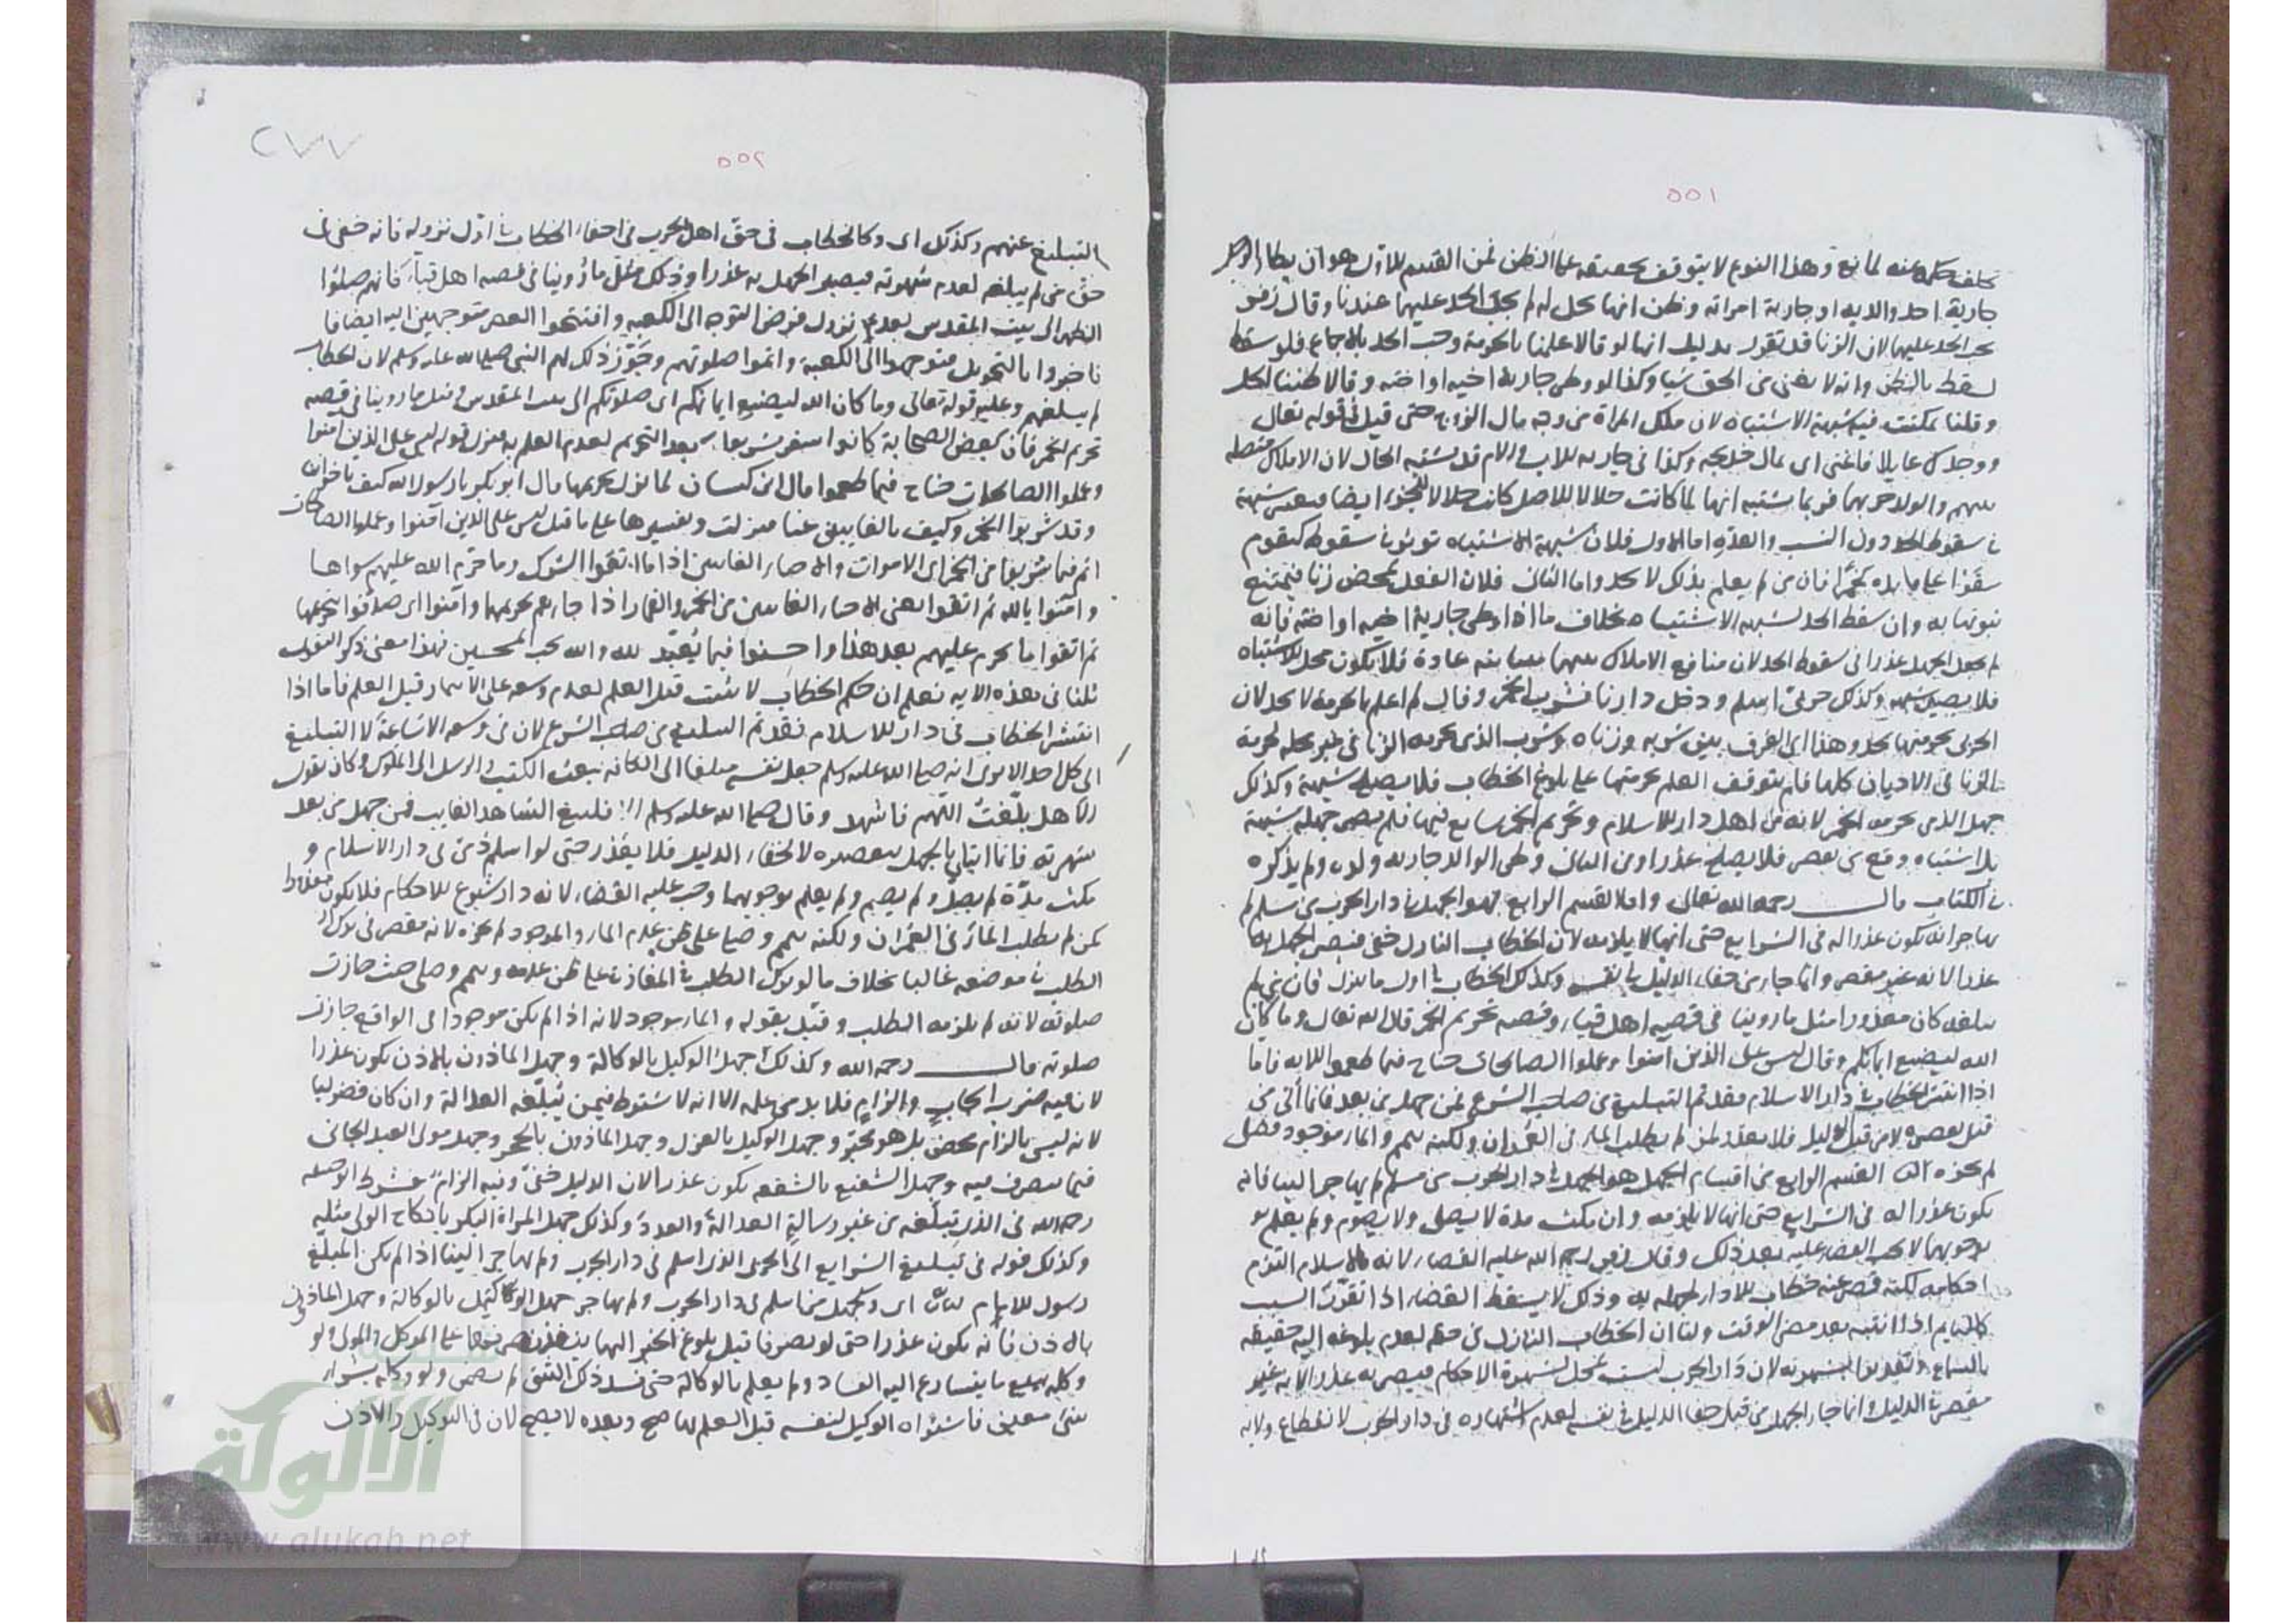 ٥٥١
جارية احد والديه او جارية امراته وظن انها تحل له لم يجب الحد عليهما عندنا وقال زفر
يجب الحد عليهما لان الزنا قد تقرر بدليل انهما لو قالا علمنا بالحرمة وجب الحد بالاجماع فلو سقط
لسقط بالظن وانه لا يغني من الحق شيا وكذا لو وطى جارية اخيه او اخته وقالا ظننا الحل
وقلنا تمكنت فيه شبهة الاشتباه لان ملك المراة من وجه مال الزوج حتى قيل في قوله تعالى
ووجدك عايلا فاغنى اى بمال خديجة وكذا في جارية الاب والام قد يشتبه الحال لان الاملاك متصلة
بينهم والولد جزءهما فربما يشتبه انها لما كانت حلالا للاصل كانت حلالا للجزء ايضا شبهة
في سقوط الحد دون النسب والعدة اما الاول فلان شبهة الاشتباه توثر في سقوط كقوم
سقوا على مايدة خمرا فان من لم يعلم بذلك لا يحد واما الثانى فلان الفعل تمحض زنا فيمتنع
ثبوتهما به وان سقط الحد لشبهة الاشتباه بخلاف ما اذا وطى جارية اخيه او اخته فانه
لم يجعل الجهل عذرا في سقوط الحد لان منافع الاملاك بينهما متباينة عادة فلا يكون محل الاشتباه
فلا يصير شبهة وكذلك حربي اسلم ودخل دارنا فشرب الخمر وقال لم اعلم بالحرمة لا يحد لان
الزنا في الاديان كلها فلم يتوقف العلم بحرمتها على بلوغ الخطاب فلا يصلح شبهة وكذلك
جهل الذمى بحرمة الخمر لانه من اهل دار الاسلام وتحريم الخمر شايع فيها فلم يصر جهله شبهة
في الكتاب قال رحمه الله تعالى واما القسم الرابع فهو الجهل في دار الحرب من مسلم لم
يهاجر انه يكون عذرا له في الشرايع حتى انها لا يلزمه لان الخطاب النازل خفي فيصير الجهل به
عذرا لانه غير مقصر وانما جاء من خفاء الدليل في نفسه وكذلك الخطاب في اول ما ينزل فان من لم
يبلغه كان معذورا مثل ما روينا في قصة اهل قباء وقصة تحريم الخمر قال الله تعالى وما كان
الله ليضيع ايمانكم وقال ليس على الذين امنوا وعملوا الصالحات جناح فيما طعموا الاية فاما
اذا انتشر الخطاب في دار الاسلام فقد تم التبليغ من صاحب الشرع فمن جهل من بعد فانما أتى من
قبل تقصيره لا من قبل الدليل فلا يعذر كمن لم يطلب الماء في العمران ولكنه تيمم والماء موجود فصلى
لم يجزه القسم الرابع من اقسام الجهل هو الجهل في دار الحرب من مسلم لم يهاجر الينا فانه
يكون عذرا له في الشرايع حتى انها لا يلزمه وان مكث مدة لا يصلى ولا يصوم ولم يعلم
بوجوبهما لا يجب القضاء عليه بعد ذلك وقال زفر رحمه الله عليه القضاء لانه بالاسلام التزم
احكامه لكنه قصر عنه خطاب الاداء لجهله به وذلك لا يسقط القضاء اذا تقرر السبب
كالنايم اذا انتبه بعد مضي الوقت ولنا ان الخطاب النازل في حقه لعدم بلوغه اليه حقيقة
بالسماع وتقديرا بشهرته لان دار الحرب ليست بمحل لشهرة الاحكام فيصير به عذر لانه غير
مقصر في الدليل وانما جاء الجهل من قبل خفاء الدليل في نفسه لعدم اشتهاره في دار الحرب لانقطاع ولاية
٢٧٧
٥٥٢
التبليغ عنهم وكذلك اى وكالخطاب في حق اهل الحرب في اخفاء الخطاب في اول نزوله فانه خفي في
حق من لم يبلغه لعدم شهرته فيصير الجهل به عذرا وذلك مثل ما روينا في قصة اهل قباء فانهم صلوا
الظهر الى بيت المقدس بعد نزول فرض التوجه الى الكعبة وافتتحوا العصر متوجهين اليه ايضا فا
فاخبروا بالتحويل فتوجهوا الى الكعبة واتموا صلوتهم وجوز ذلك لهم النبى صلى الله عليه وسلم لان الخطاب
لم يبلغهم وعليه قوله تعالى وما كان الله ليضيع ايمانكم اى صلوتكم الى بيت المقدس ومثل ما روينا في قصة
تحريم الخمر فان بعض الصحابة كانوا سفر شربوا بعد التحريم لعدم العلم به فنزل قوله ليس على الذين امنوا
وعملوا الصالحات جناح فيما طعموا قال ابن كيسان لما نزل تحريمها قال ابو بكر يا رسول الله كيف باخواننا
وقد شربوا الخمر وكيف بالغايبين عنا فنزلت وتفسيرها على ما قيل ليس على الذين آمنوا وعملوا الصالحات
اثم فيما شربوا من الخمر اى الاموات والاحياء الغايبين اذا ما اتقوا الشرك وما حرم الله عليهم سواها
وآمنوا بالله ثم اتقوا يعنى الاحياء الغايبين من الخمر والقمار اذا جاءهم تحريمهما وآمنوا اى صدقوا بتحريمها
ثم اتقوا ما يحرم عليهم بعد هذا واحسنوا فيما تعبد الله والله يحب المحسنين فهذا معنى ذكر التقوى
ثلثا في هذه الاية فعلم ان حكم الخطاب لا يثبت قبل العلم لعدم وسعه على الايتمار قبل العلم فاما اذا
انتشر الخطاب في دار الاسلام فقد تم التبليغ من صاحب الشرع لان في وسعه الاشاعة لا التبليغ
الى كل احد الا ترى انه صلى الله عليه وسلم جعل نفسه مبلغا الى الكافة ببعث الكتب والرسل الى الملوك وكان يقول
الا هل بلغت اللهم فاشهد وقال صلى الله عليه وسلم الا فليبلغ الشاهد الغايب فمن جهل من بعد
شهرته فانما ابتلى بالجهل بتقصيره لا لخفاء الدليل فلا يعذر حتى لو اسلم ذمى في دار الاسلام و
مكث مدة لم يصل ولم يصم ولم يعلم بوجوبهما وجب عليه القضاء لانه دار شيوع الاحكام فلا يكون معذورا
كمن لم يطلب الماء في العمران ولكنه تيمم وصلى على ظن عدم الماء والماء موجود لم يجزه لانه مقصر في ترك
الطلب في موضعه غالبا بخلاف ما لو ترك الطلب في المفازة على ظن عدمه وتيمم وصلى حيث جازت
صلوته لانه لم يلزمه الطلب وقيد بقوله والماء موجود لانه اذا لم يكن موجودا في الواقع جازت
صلوته قال رحمه الله وكذلك جهل الوكيل بالوكالة وجهل الماذون بالاذن يكون عذرا
لان فيه ضرب ايجاب والزام فلا بد من علمه الا انه لا يشترط فيمن يبلغه العدالة وان كان فضوليا
لانه ليس بالزام محض بل هو مخير وجهل الوكيل بالعزل وجهل الماذون بالحجر وجهل مولى العبد الجانى
فيما يتصرف فيه وجهل الشفيع بالشفعة يكون عذرا لان الدليل خفى وفيه الزام فشرط ابو حنيفة
رحمه الله في الذى يبلغه من غير رسالة العدالة والعدد وكذلك جهل المراة البكر بانكاح الولى مثله
وكذلك قوله في تبليغ الشرايع الى الحربى الذى اسلم في دار الحرب ولم يهاجر الينا اذا لم يكن المبلغ
رسول الامام اى وكجهل من اسلم في دار الحرب ولم يهاجر جهل الوكيل بالوكالة وجهل الماذون
بالاذن فانه يكون عذرا حتى لو تصرفا قبل بلوغ الخبر اليهما لم ينفذ تصرفهما على الموكل والمولى ولو
وكله ببيع ما يتسارع اليه الفساد ولم يعلم بالوكالة حتى فسد ذلك الشئ لم يضمن ولو وكله بشراء
شئ معين فاشتراه الوكيل لنفسه قبل العلم بها صح وبعده لا يصح لان في التوكيل والاذن
الألوكة
www.alukah.net